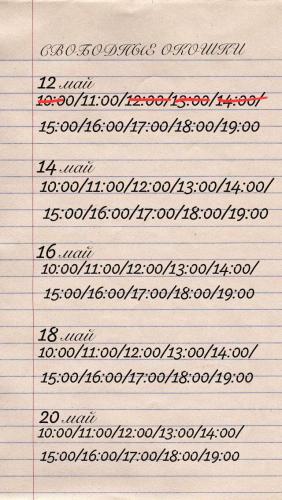 СВОБОДНЫЕ ОКОШКИ
12 май
10:00/11:00/12:00/13:00/14:00/
15:00/16:00/17:00/18:00/19:00
14 май
10:00/11:00/12:00/13:00/14:00/
15:00/16:00/17:00/18:00/19:00
16 май
10:00/11:00/12:00/13:00/14:00/
15:00/16:00/17:00/18:00/19:00
18 май
10:00/11:00/12:00/13:00/14:00/
15:00/16:00/17:00/18:00/19:00
20 май
10:00/11:00/12:00/13:00/14:00/
15:00/16:00/17:00/18:00/19:00